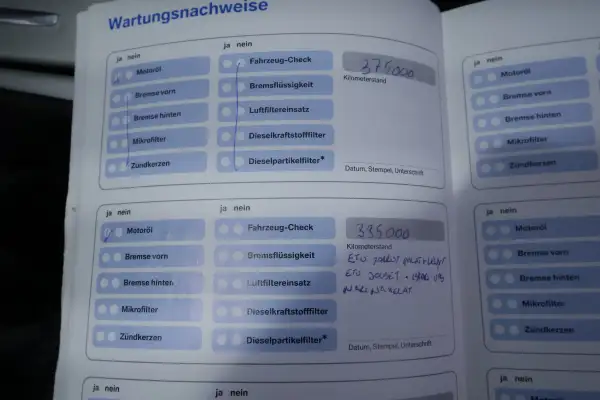 Wartungsnachweise
ja nein
Motoröl
Bremse vorn
Bremse hinten
Mikrofilter
Zündkerzen
ja nein
Fahrzeug-Check
Bremsflüssigkeit
Luftfiltereinsatz
Dieselkraftstofffilter
Dieselpartikelfilter*
375000
Kilometerstand
Datum, Stempel, Unterschrift
ja nein
Motoröl
Bremse vorn
Bremse hinten
Mikrofilter
Zündkerzen
ja nein
Motoröl
Bremse vorn
Bremse hinten
Mikrofilter
Zündkerzen
ja nein
Fahrzeug-Check
Bremsflüssigkeit
Luftfiltereinsatz
Dieselkraftstofffilter
Dieselpartikelfilter*
395000
Kilometerstand
ETU
ETU
Datum, Stempel, Unterschrift
ja nein
Motoröl
Bremse vorn
Bremse hinten
Mikrofilter
Zündkerzen
ja nein
ja nein
ja nein